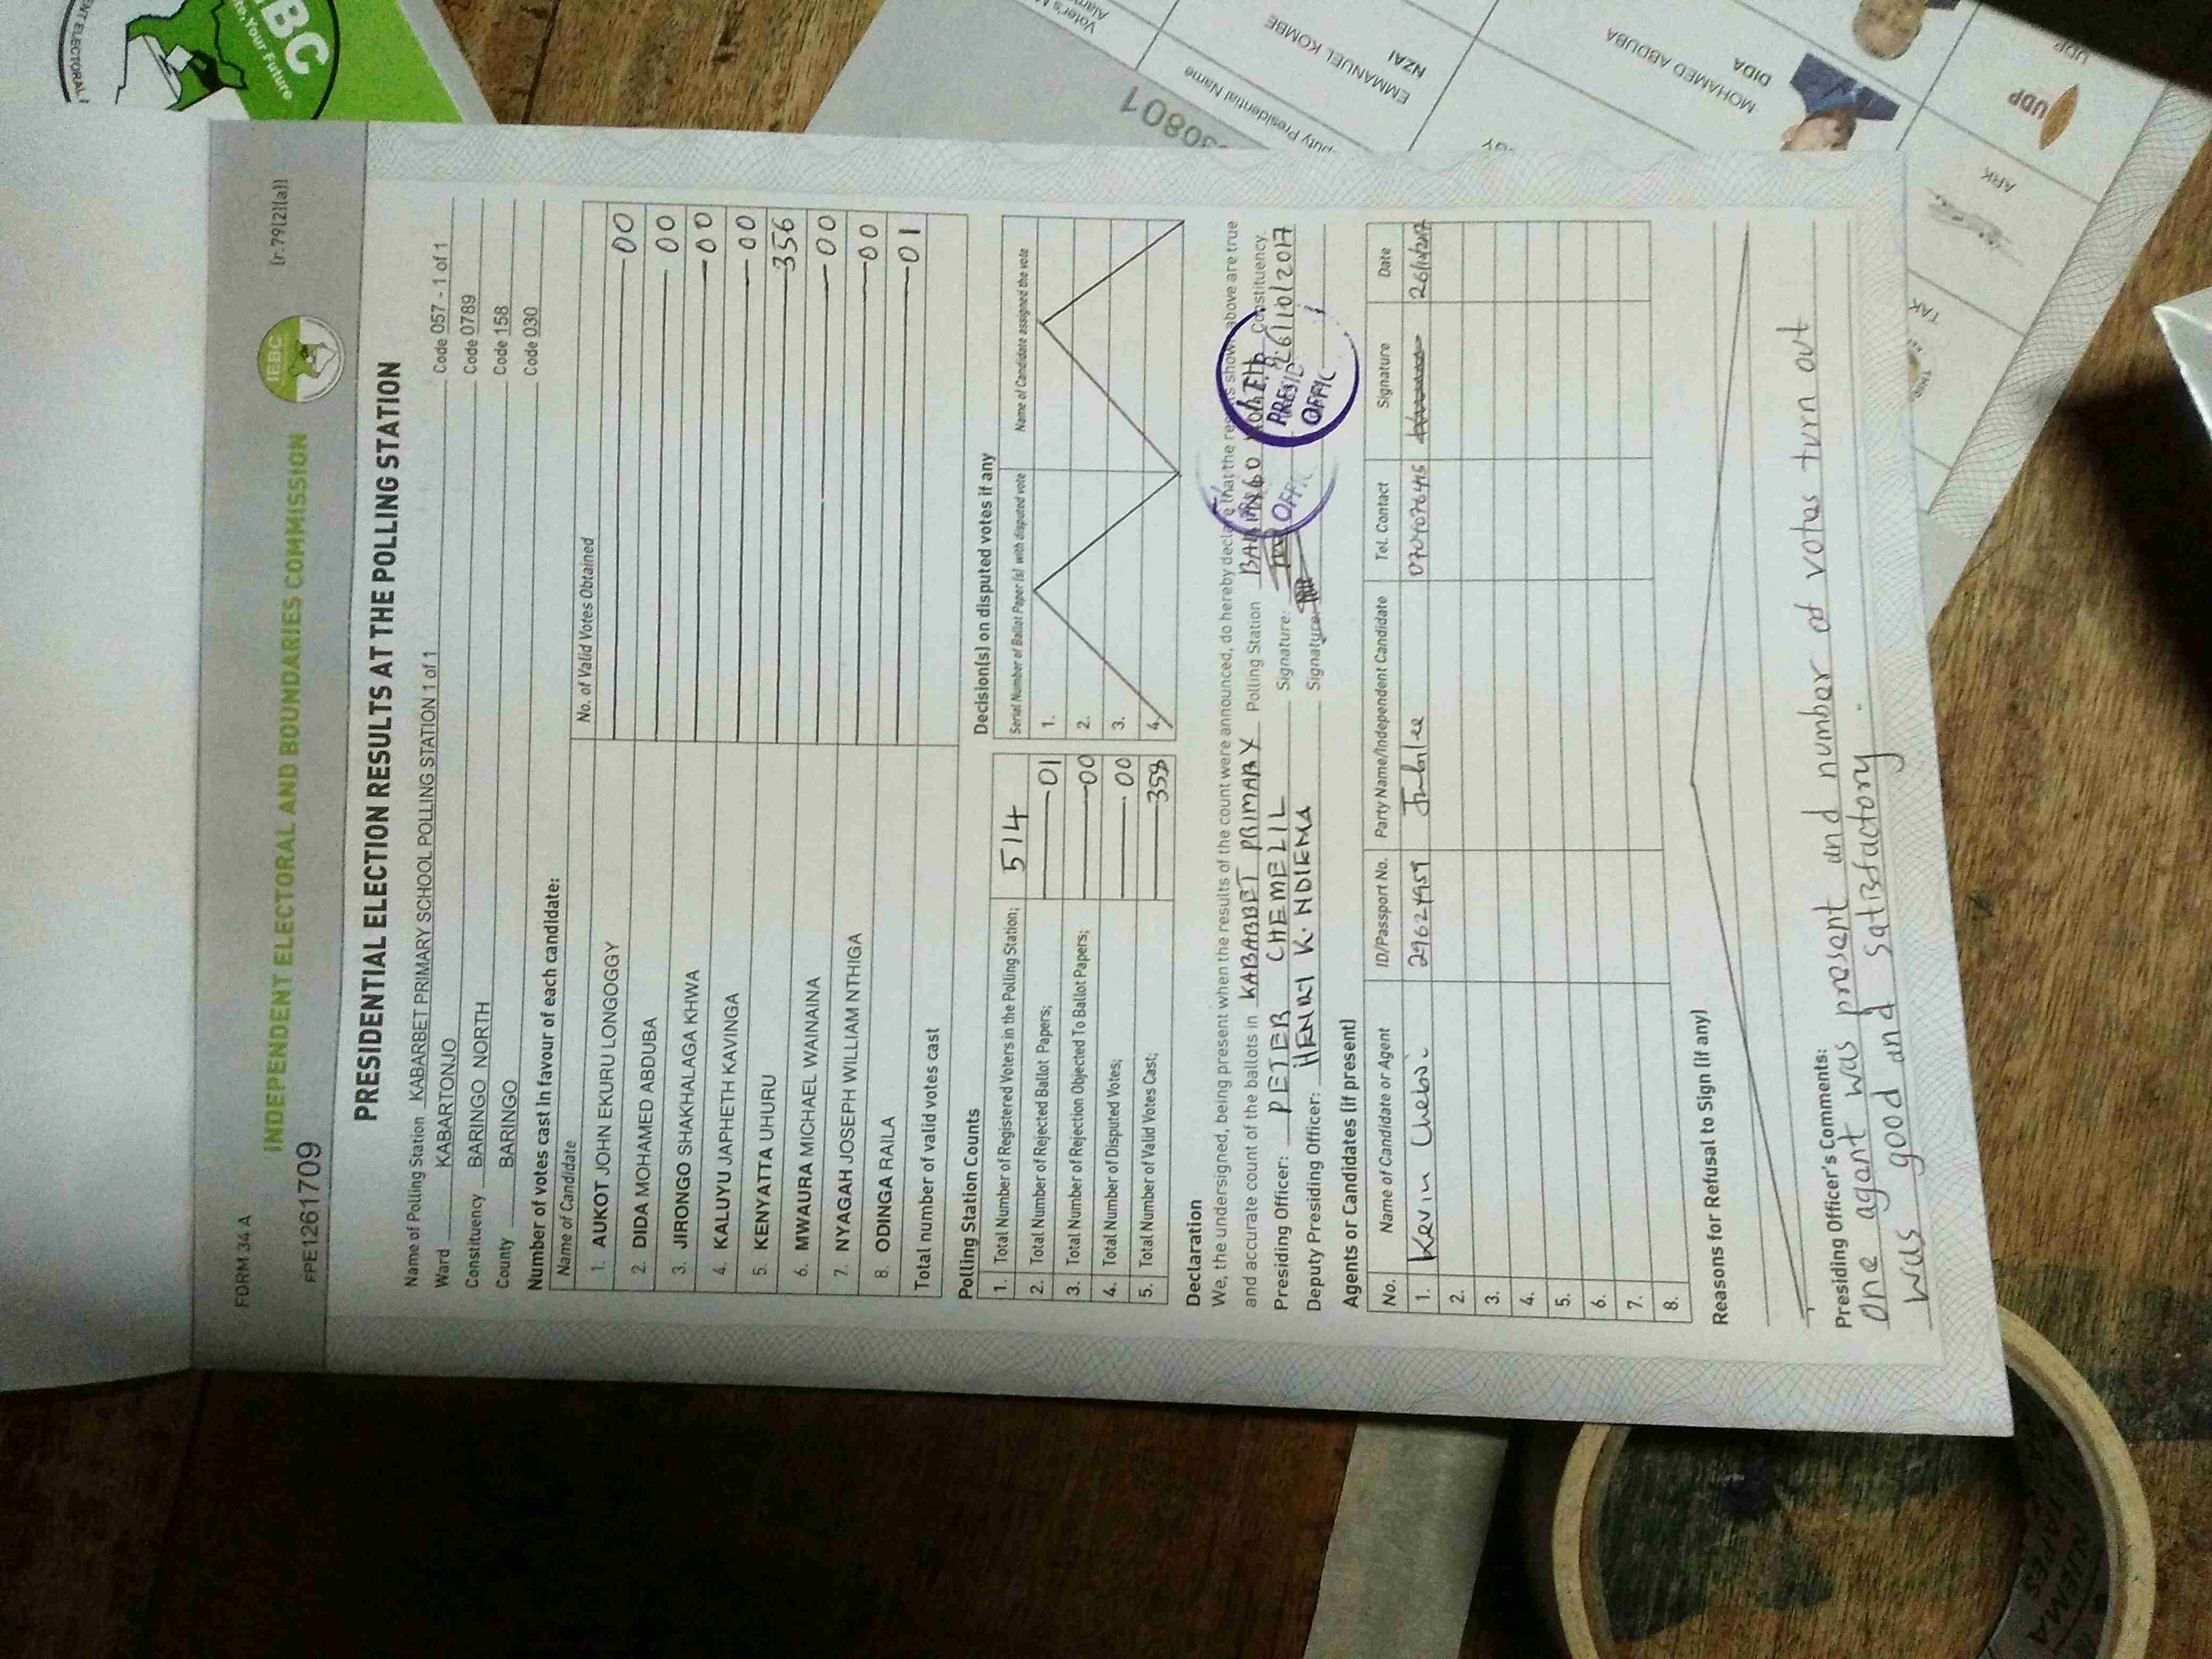 FORM 34 A
INDEPENDENT ELECTORAL AND BOUNDARIES COMMISSION
IEBC
[r.79(2)(a)]
FPE1261709
PRESIDENTIAL ELECTION RESULTS AT THE POLLING STATION
Name of Polling Station KABARBET PRIMARY SCHOOL POLLING STATION 1 of 1 Code 057 - 1 of 1
Ward KABARTONJO Code 0789
Constituency BARINGO NORTH Code 158
County BARINGO Code 030
Number of votes cast in favour of each candidate:
Name of Candidate No. of Valid Votes Obtained
1. AUKOT JOHN EKURU LONGOGGY 00
2. DIDA MOHAMED ABDUBA 00
3. JIRONGO SHAKHALAGA KHWA 00
4. KALUYU JAPHETH KAVINGA 00
5. KENYATTA UHURU 356
6. MWAURA MICHAEL WAINAINA 00
7. NYAGAH JOSEPH WILLIAM NTHIGA 00
8. ODINGA RAILA 01
Total number of valid votes cast
Polling Station Counts
1. Total Number of Registered Voters in the Polling Station; 514
2. Total Number of Rejected Ballot Papers; 01
3. Total Number of Rejection Objected To Ballot Papers; 00
4. Total Number of Disputed Votes; 00
5. Total Number of Valid Votes Cast;
Decision(s) on disputed votes if any
Serial Number of Ballot Paper (s) with disputed vote Name of Candidate assigned the vote
1.
2.
3.
4.
Declaration
We, the undersigned, being present when the results of the count were announced, do hereby declare that the results shown above are true
and accurate count of the ballots in KABARBET PRIMARY Polling Station BARINGO NORTH Constituency.
Presiding Officer: PETER CHEMELIL Signature: 26/10/2017
Deputy Presiding Officer: HENRY K. NDIEMA Signature:
PRESID
OFFIC
OFFIC
Agents or Candidates (if present)
No. Name of Candidate or Agent ID/Passport No. Party Name/Independent Candidate Tel. Contact Signature Date
1. Kevin Cheboi 29624959 Jubilee 26/10/2017
2.
3.
4.
5.
6.
7.
8.
Reasons for Refusal to Sign (if any)
Presiding Officer's Comments:
One agent was present and number of votes turn out
was good and satisfactory.
BC
Your Future
30801
Deputy Presidential Name
EMMANUEL KOMBE
NZAI
MOHAMED ABDUBA
DIDA
UDP
UDP
ARK
TAK